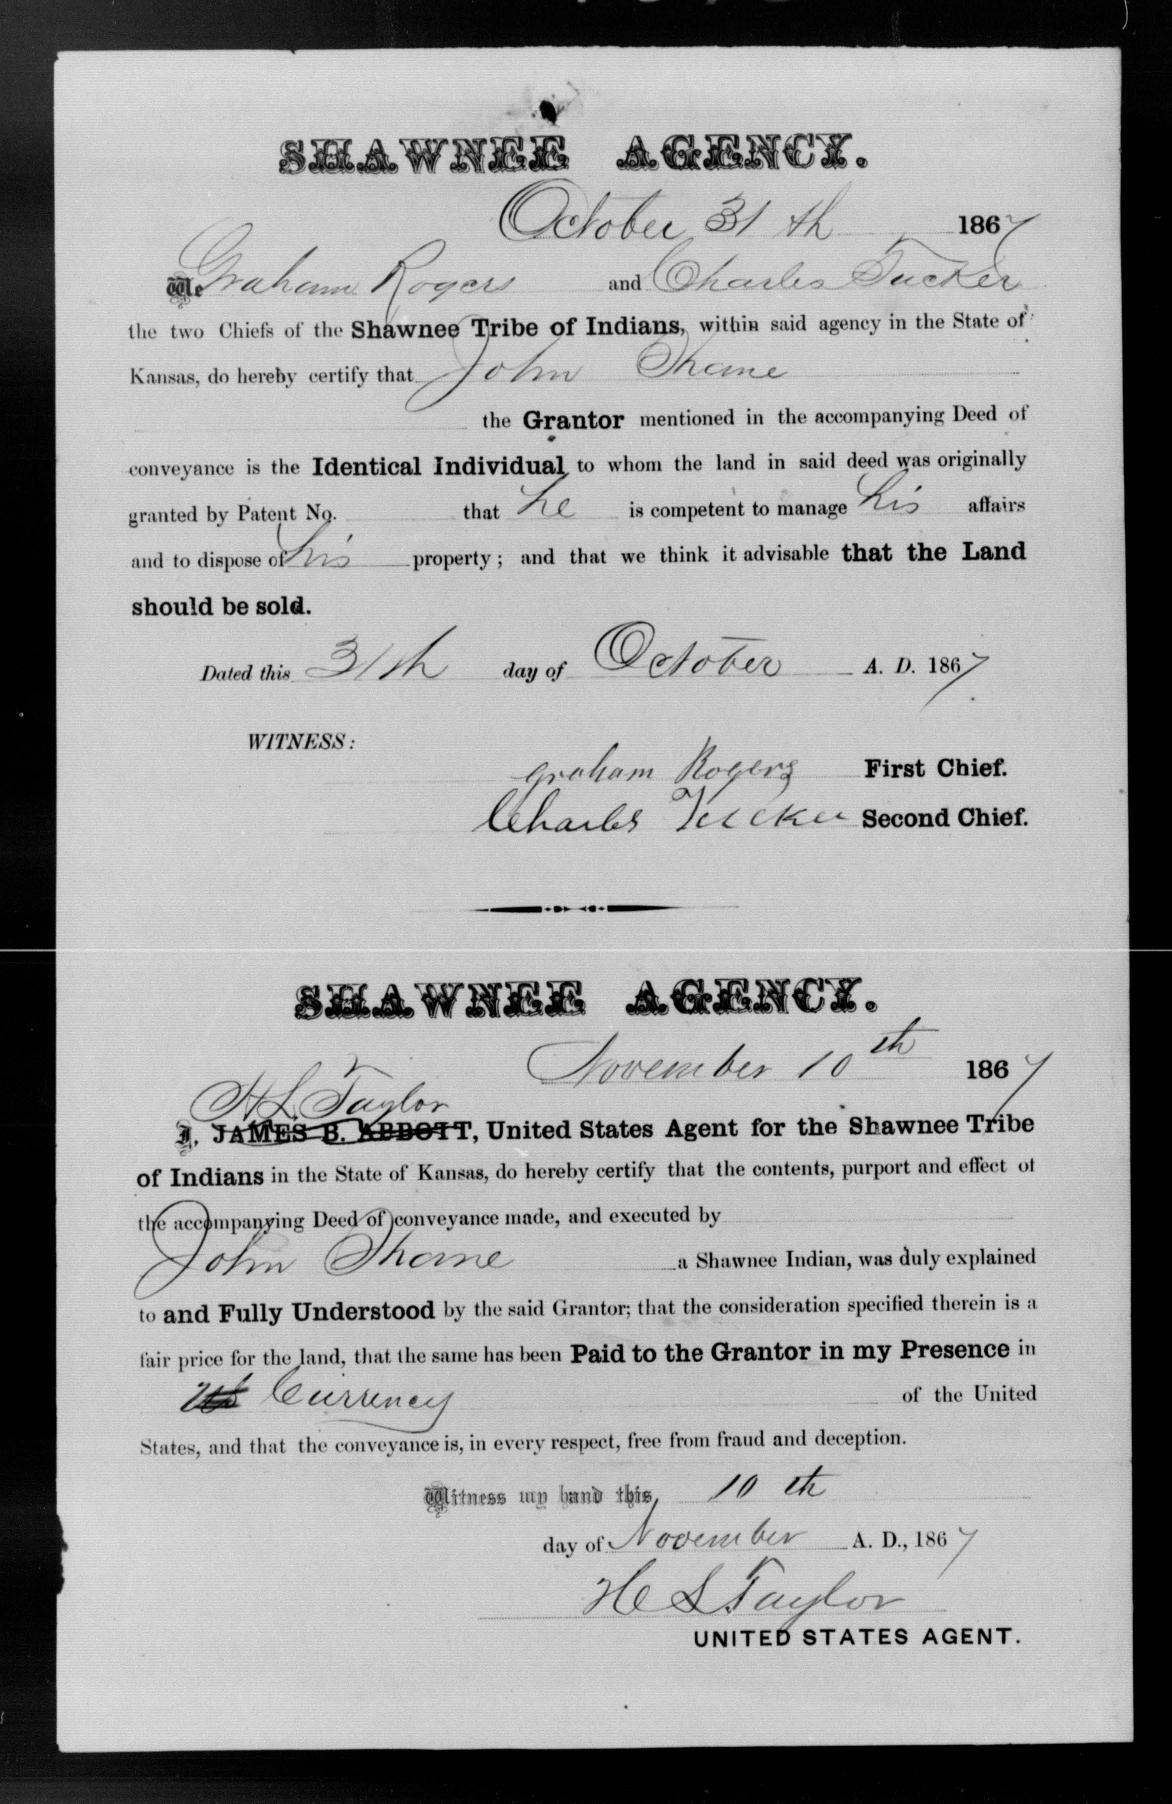 SHAWNEE AGENCY.
October 31th 1867
We Graham Rogers and Charles Tucker
the two Chiefs of the Shawnee Tribe of Indians, within said agency in the State of
Kansas, do hereby certify that John Shane
the Grantor mentioned in the accompanying Deed of
conveyance is the Identical Individual to whom the land in said deed was originally
granted by Patent No. that he is competent to manage his affairs
and to dispose of his property; and that we think it advisable that the Land
should be sold.
Dated this 31th day of October A. D. 1867
WITNESS:
Graham Rogers First Chief.
Charles Tucker Second Chief.
SHAWNEE AGENCY.
November 10th 1867
H L Taylor
I, JAMES B. ABBOTT, United States Agent for the Shawnee Tribe
of Indians in the State of Kansas, do hereby certify that the contents, purport and effect of
the accompanying Deed of conveyance made, and executed by
John Shane a Shawnee Indian, was duly explained
to and Fully Understood by the said Grantor; that the consideration specified therein is a
fair price for the land, that the same has been Paid to the Grantor in my Presence in
Currency of the United
States, and that the conveyance is, in every respect, free from fraud and deception.
Witness my hand this 10th
day of November A. D., 1867
H L Taylor
UNITED STATES AGENT.